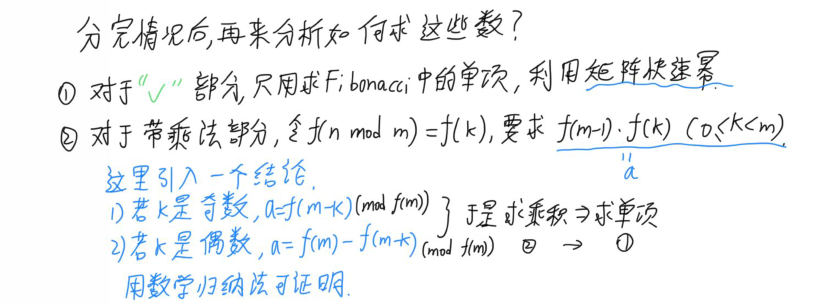 分完情况后,再来分析如何求这些数?
① 对于“✓”部分,只用求Fibonacci中的单项,利用矩阵快速幂
② 对于带乘法部分,令f(n mod m)=f(k),要求 f(m-1)·f(k) (0≤k<m)
这里引入一个结论. a
1)若k是奇数,a=f(m-k)(mod f(m)) } 于是求乘积⇒求单项
2)若k是偶数,a=f(m)-f(m-k)(mod f(m)) ② → ①
用数学归纳法可证明.